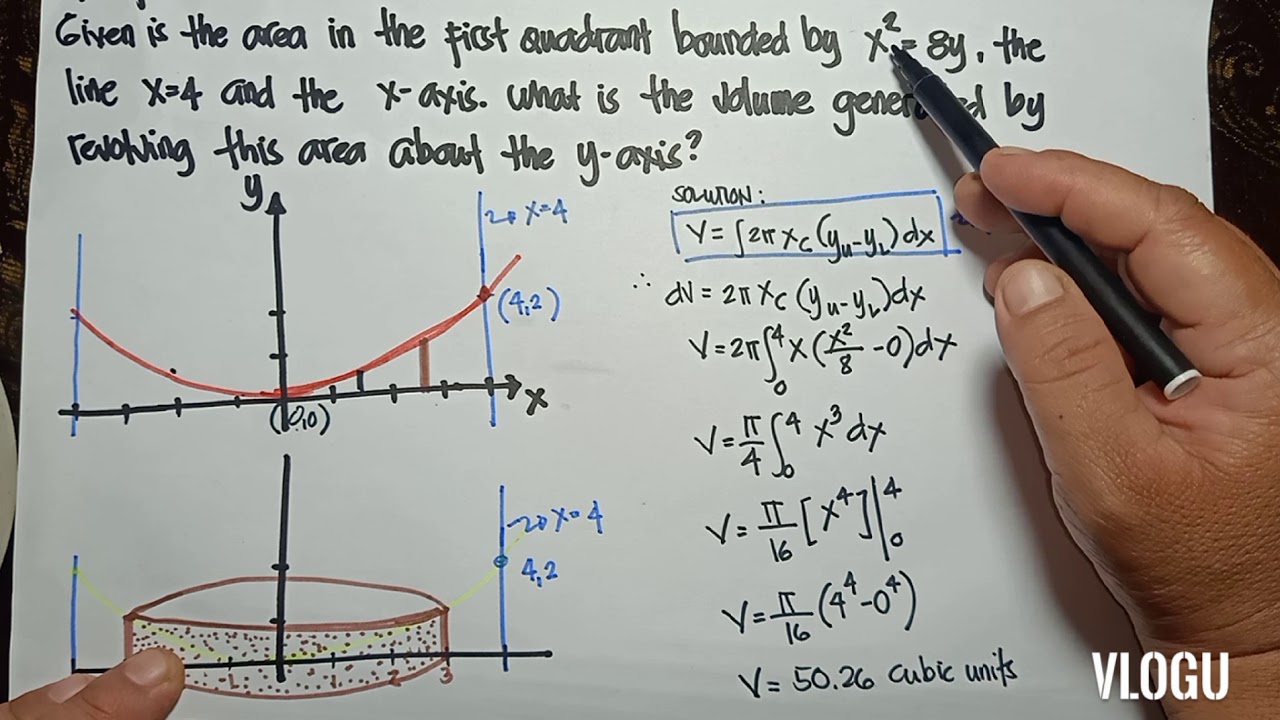 Given is the area in the first quadrant bounded by x²=8y, the
line x=4 and the x-axis. What is the volume generated by
revolving this area about the y-axis?
y
x=4
(4,2)
x
(0,0)
x=4
4,2
1
1
2
3
SOLUTION:
V=∫2πxc(yu-yL)dx
∴ dV=2πxc(yu-yL)dx
V=2π∫₀⁴x(x²/8-0)dx
V=π/4∫₀⁴x³dx
V=π/16[x⁴]|₀⁴
V=π/16(4⁴-0⁴)
V=50.26 cubic units
VLOGU